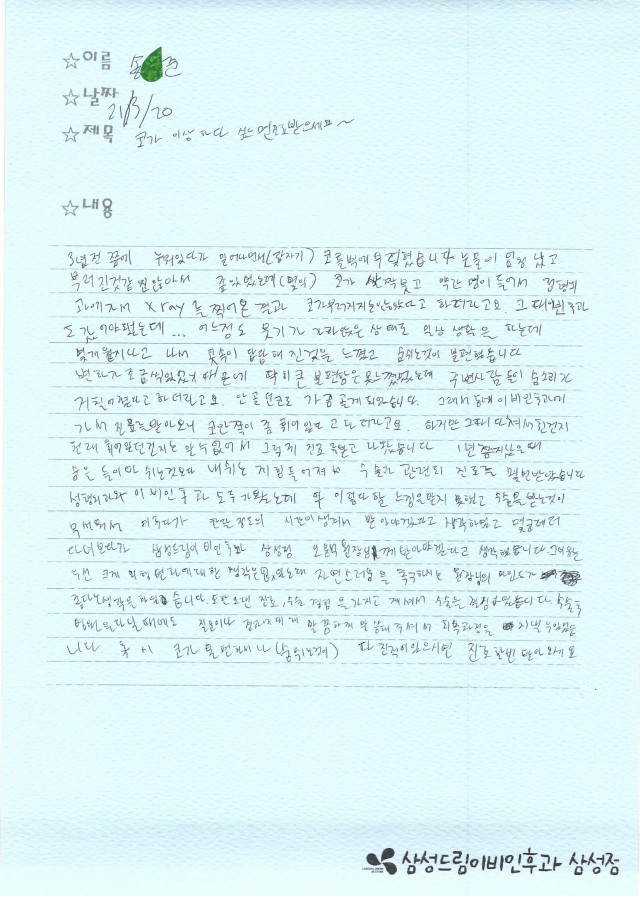 ☆이름 송 견
☆날짜 21/3/20
☆제목 코가 이상하다 싶으면 진료받으세요~
☆내용
3년전 쯤에 누워있다가 일어나면서(갑자기) 코를벽에 부딪혔습니다 눈물이 엄청 났고
부러진것같진않아서 놔뒀었는데(몇일) 코가 살짝붓고 약간 멍이들어서 정형외
과에가서 Xray를 찍어본 결과 코가부러지지는않았다고 하더라고요. 그때
어느정도 붓기가 가라앉은 상태로 일상 생활을 하는데
몇개월지나고 나서 콧속이 답답해진것을 느꼈고 숨쉬는것이 불편했습니다
변화가 조금씩있었기 때문에 딱히 큰 불편함은 못느꼈었는데 주변사람들이 숨소리가
거칠어졌다고 하더라고요. 그래서 동네 이비인후과에
가서 진료를 받아보니 코안쪽이 좀 휘어있다고 하더라고요. 하지만 그때 다쳐서 휜건지
원래 휘어있던건지는 알수없어서 그렇게 진료 받고 나왔습니다 1년 지났을때
숨을 들이마쉬는것보다 내쉬는게 힘들어져서 수술과 관련된 진료를 몇번받았습니다
성형외과와 이비인후과 모두 가봤는데 뭐 이렇다할 느낌을받지 못했고 수술을 받는것이
무서워서 미루다가 한달 정도의 시간이생겨서 받아야겠다고 생각하였고 몇군데더
다녀보다가 삼성드림이비인후과 삼성점 원장님께 받아야겠다고 생각했습니다. 그이유는
우선 크게 외형변화에대한 생각은없었는데 자연스러움을 추구하는 원장님의 마인드가
좋다는생각을 하였습니다. 또한 오랜 진료, 수술 경험을가지고 계셔서 수술을 결심하였습니다. 수술후
병원을다닐때에도 질문이나 꼼꼼하게 잘 말해주셔서 회복과정을 잘 지낼 수있었습
니다 혹시 코가 불편하시거나(숨쉬는게) 다친적이있으시면 진료한번 받아보세요
삼성드림이비인후과 삼성점